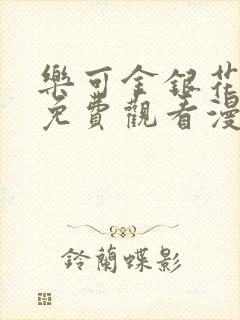 樂可金銀花
免費觀看漫
鈴蘭蝶影